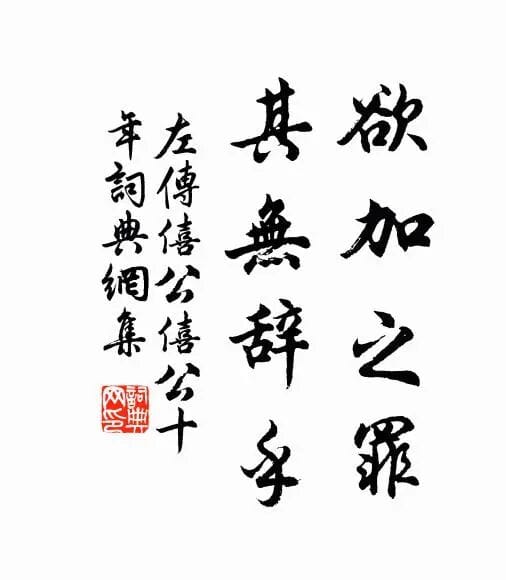 欲加之罪
其無辞乎
左傳僖公僖公十
年詞典網集
詞典
网印